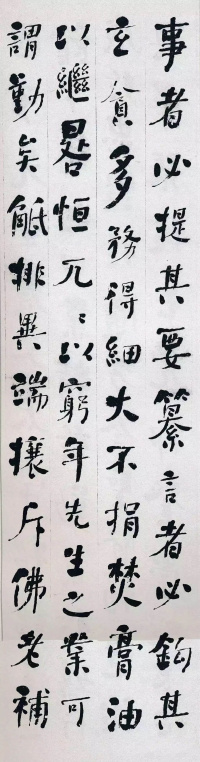 事者必提其要纂言者必鈎其
玄貪多務得細大不捐焚膏油
以繼晷恒兀〻以窮年先生之業可
謂勤矣觝排異端攘斥佛老補